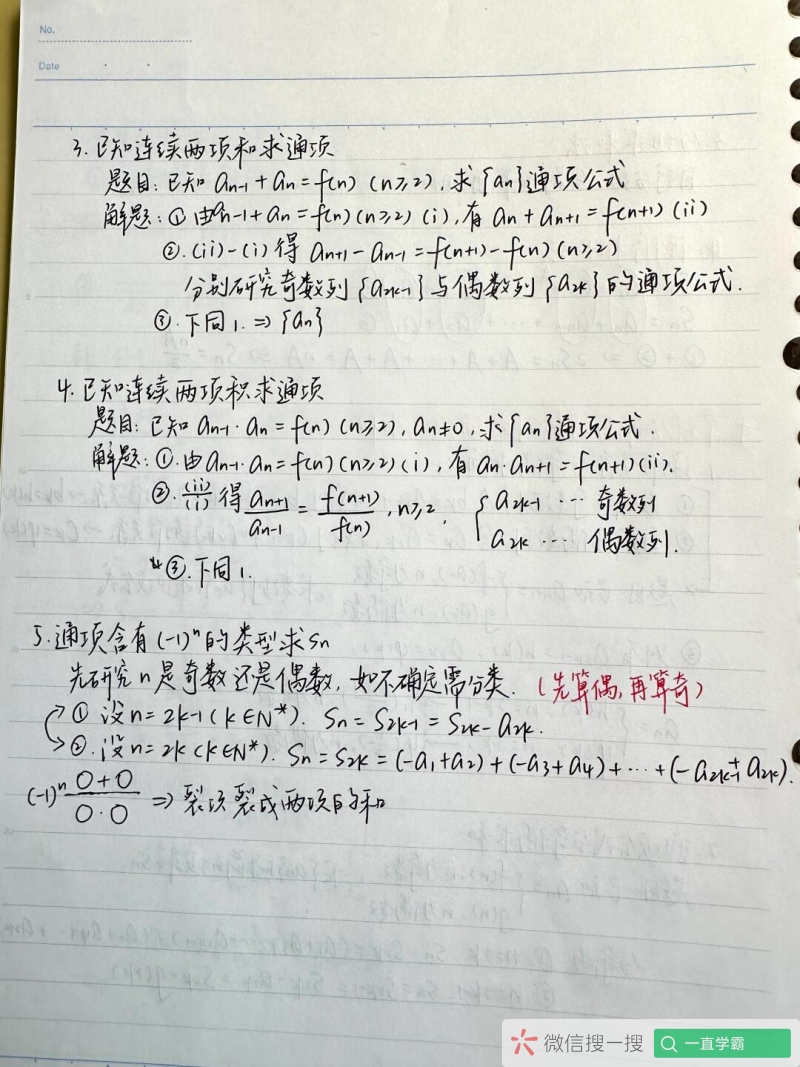 No.
Date
3. 已知连续两项和求通项
题目: 已知 aₙ₋₁ + aₙ = f(n) (n≥2), 求{aₙ}通项公式
解题: ① 由aₙ₋₁ + aₙ = f(n) (n≥2) (i), 有 aₙ + aₙ₊₁ = f(n+1) (ii)
②. (ii)-(i) 得 aₙ₊₁ - aₙ₋₁ = f(n+1) - f(n) (n≥2)
分别研究奇数列{a₂ₖ₋₁}与偶数列{a₂ₖ}的通项公式.
③. 下同1. ⇒ {aₙ}
4. 已知连续两项积求通项
题目: 已知 aₙ₋₁·aₙ = f(n) (n≥2), aₙ≠0, 求{aₙ}通项公式.
解题: ①. 由aₙ₋₁·aₙ = f(n) (n≥2) (i), 有 aₙ·aₙ₊₁ = f(n+1) (ii).
②. (ii)/(i) 得 aₙ₊₁/aₙ₋₁ = f(n+1)/f(n), n≥2, { a₂ₖ₋₁ … 奇数列
a₂ₖ … 偶数列.
③. 下同1.
5. 通项含有(-1)ⁿ的类型求Sₙ
先研究n是奇数还是偶数, 如不确定需分类. (先算偶, 再算奇)
① 设n=2k-1 (k∈N*). Sₙ = S₂ₖ₋₁ = S₂ₖ - a₂ₖ.
②. 设n=2k (k∈N*). Sₙ = S₂ₖ = (-a₁+a₂) + (-a₃+a₄) + … + (-a₂ₖ₋₁+a₂ₖ).
(-1)ⁿ (O+O)/(O·O) ⇒ 裂项裂成两项的和
微信搜一搜
一直学霸